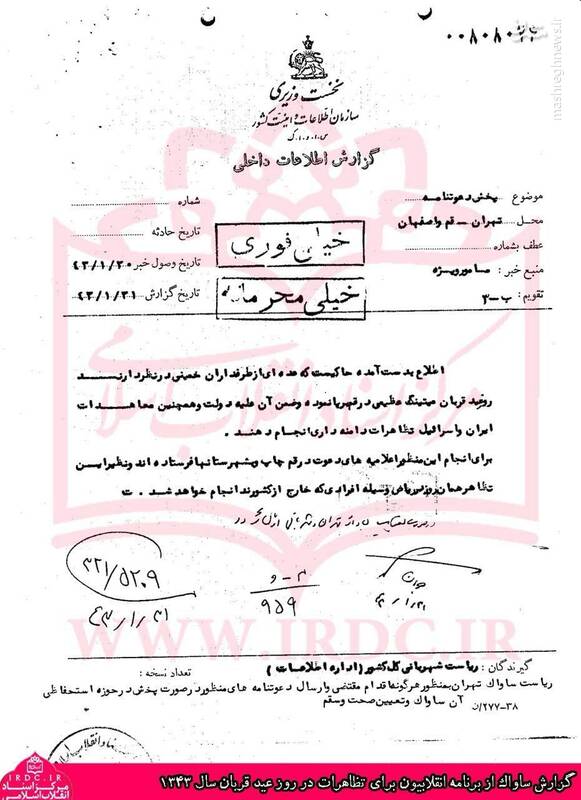 ۰۰۸۰۸۰۲۴
mashreghnews.ir
نخست وزیری
سازمان اطلاعات و امنیت کشور
س.ا.و.ا.ک
گزارش اطلاعات داخلی
موضوع پخش دعوتنامه
محل تهران – قم واصفهان
عطف بشماره
منبع خبر : مامور ویژه
تقویم : ب-۳
شماره
تاریخ حادثه
تاریخ وصول خبر ۴۳/۱/۳۰
تاریخ گزارش ۴۳/۱/۳۱
خیلی فوری
خیلی محرمانه
اطلاع بدست آمده حاکیست که عده ای از طرفداران خمینی درنظر دارنــد
روز عید قربان میتینگ عظیمی در قم برپا نموده و ضمن آن علیه دولت و همچنین معاهدات
ایران و اسرائیل تظاهرات دامنه داری انجام دهند .
برای انجام این منظور اعلامیه های دعوت در قم چاپ و بشهرستانها فرستاده اند و نظیر ایـن
تظاهر همان روز در ریاض وسیله افرادی که خارج از کشورند انجام خواهد شد . ت
۳۲۱/۵۲۰۹
۴۳/۱/۳۱
۳-و
۹۵۹
گیرندگان : ریاست شهربانی کل کشور (اداره اطلاعات)
تعداد نسخه :
ریاست ساواک تهران بمنظور هرگونه اقدام مقتضی وارسال دعوتنامه های منظور درصورت پخش در حوزه استحفاظی
آن ساواک وتعیین صحت وسقم
۲۷۷/ن-۳۸
مرکز اسناد انقلاب اسلامی
WWW.IRDC.IR
IRDC.IR
مرکز اسناد
انقلاب اسلامی
گزارش ساواک از برنامه انقلابیون برای تظاهرات در روز عید قربان سال ۱۳۴۳